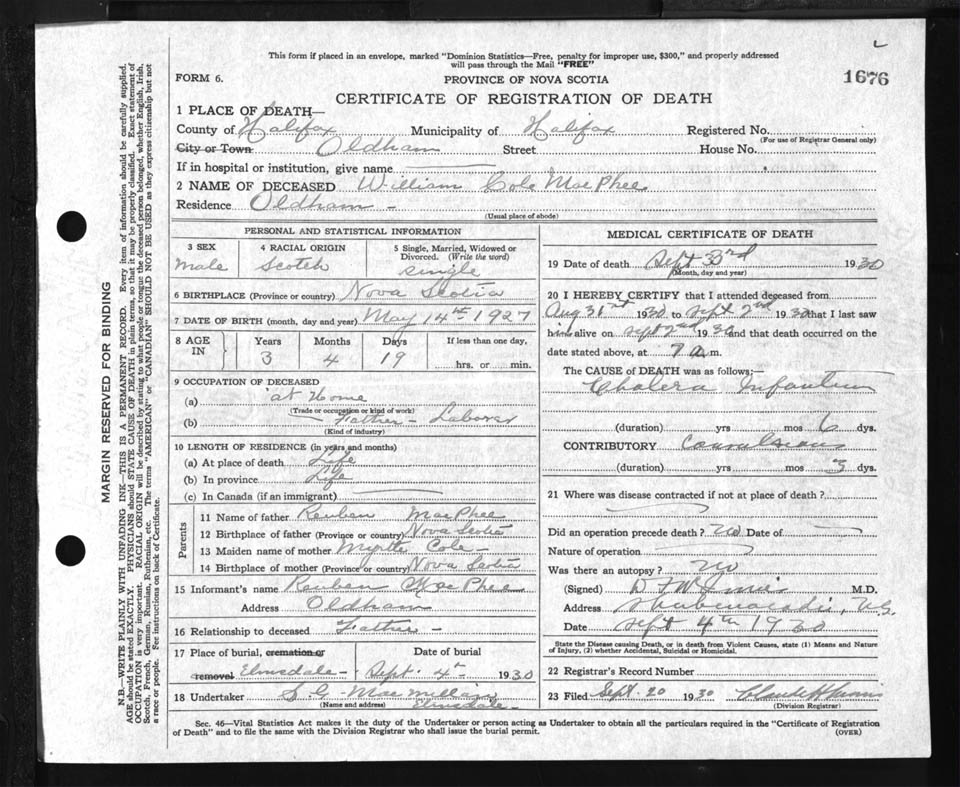 This form if placed in an envelope, marked "Dominion Statistics—Free, penalty for improper use, $300," and properly addressed
will pass through the Mail "FREE"
FORM 6.
PROVINCE OF NOVA SCOTIA
1676
CERTIFICATE OF REGISTRATION OF DEATH
1 PLACE OF DEATH—
County of Halifax Municipality of Halifax Registered No.
(For use of Registrar General only)
City or Town Oldham Street House No.
If in hospital or institution, give name
2 NAME OF DECEASED William Cole MacPhee
Residence Oldham -
(Usual place of abode)
PERSONAL AND STATISTICAL INFORMATION
3 SEX 4 RACIAL ORIGIN 5 Single, Married, Widowed or
Divorced. (Write the word)
Male Scotch Single
6 BIRTHPLACE (Province or country) Nova Scotia
7 DATE OF BIRTH (month, day and year) May 14th 1927
8 AGE IN Years Months Days If less than one day,
3 4 19 hrs. or min.
9 OCCUPATION OF DECEASED
(a) at Home
(Trade or occupation or kind of work)
(b) Father - Laborer
(Kind of industry)
10 LENGTH OF RESIDENCE (in years and months)
(a) At place of death Life
(b) In province Life
(c) In Canada (if an immigrant)
Parents
11 Name of father Reuben MacPhee
12 Birthplace of father (Province or country) Nova Scotia
13 Maiden name of mother Myrtle Cole -
14 Birthplace of mother (Province or country) Nova Scotia
15 Informant's name Reuben MacPhee
Address Oldham
16 Relationship to deceased Father -
17 Place of burial, cremation or Date of burial
removal Elmsdale - Sept. 4th 1930
18 Undertaker S G MacMillan
(Name and address) Elmsdale
MEDICAL CERTIFICATE OF DEATH
19 Date of death Sept 3rd 1930
(Month, day and year)
20 I HEREBY CERTIFY that I attended deceased from
Aug 31st 1930 to Sept 2nd 1930 that I last saw
him alive on Sept 2nd 1930 and that death occurred on the
date stated above, at 7 a.m.
The CAUSE of DEATH was as follows:
Cholera Infantum
(duration) yrs mos 6 dys.
CONTRIBUTORY Convulsions
(duration) yrs mos 3 dys.
21 Where was disease contracted if not at place of death?
Did an operation precede death? no Date of
Nature of operation
Was there an autopsy? no
(Signed) M.D.
Address Shubenacadie, N.S.
Date Sept 4th 1930
State the Disease causing Death, or in death from Violent Causes, state (1) Means and Nature
of Injury, (2) whether Accidental, Suicidal or Homicidal.
22 Registrar's Record Number
23 Filed Sept. 20 1930
(Division Registrar)
Sec. 46—Vital Statistics Act makes it the duty of the Undertaker or person acting as Undertaker to obtain all the particulars required in the "Certificate of Registration
of Death" and to file the same with the Division Registrar who shall issue the burial permit. (OVER)
MARGIN RESERVED FOR BINDING
N.B.—WRITE PLAINLY WITH UNFADING INK—THIS IS A PERMANENT RECORD. Every item of information should be carefully supplied.
AGE should be stated EXACTLY. PHYSICIANS should STATE CAUSE OF DEATH in plain terms, so that it may be properly classified. Exact statement of
OCCUPATION is very important. RACIAL ORIGIN will be described by stating to what people or tongue the deceased person belonged, whether English, Irish,
Scotch, French, German, Russian, Ruthenian, etc. The terms "AMERICAN" or "CANADIAN" SHOULD NOT BE USED as they express citizenship but not
a race or people. Fee instructions on back of Certificate.